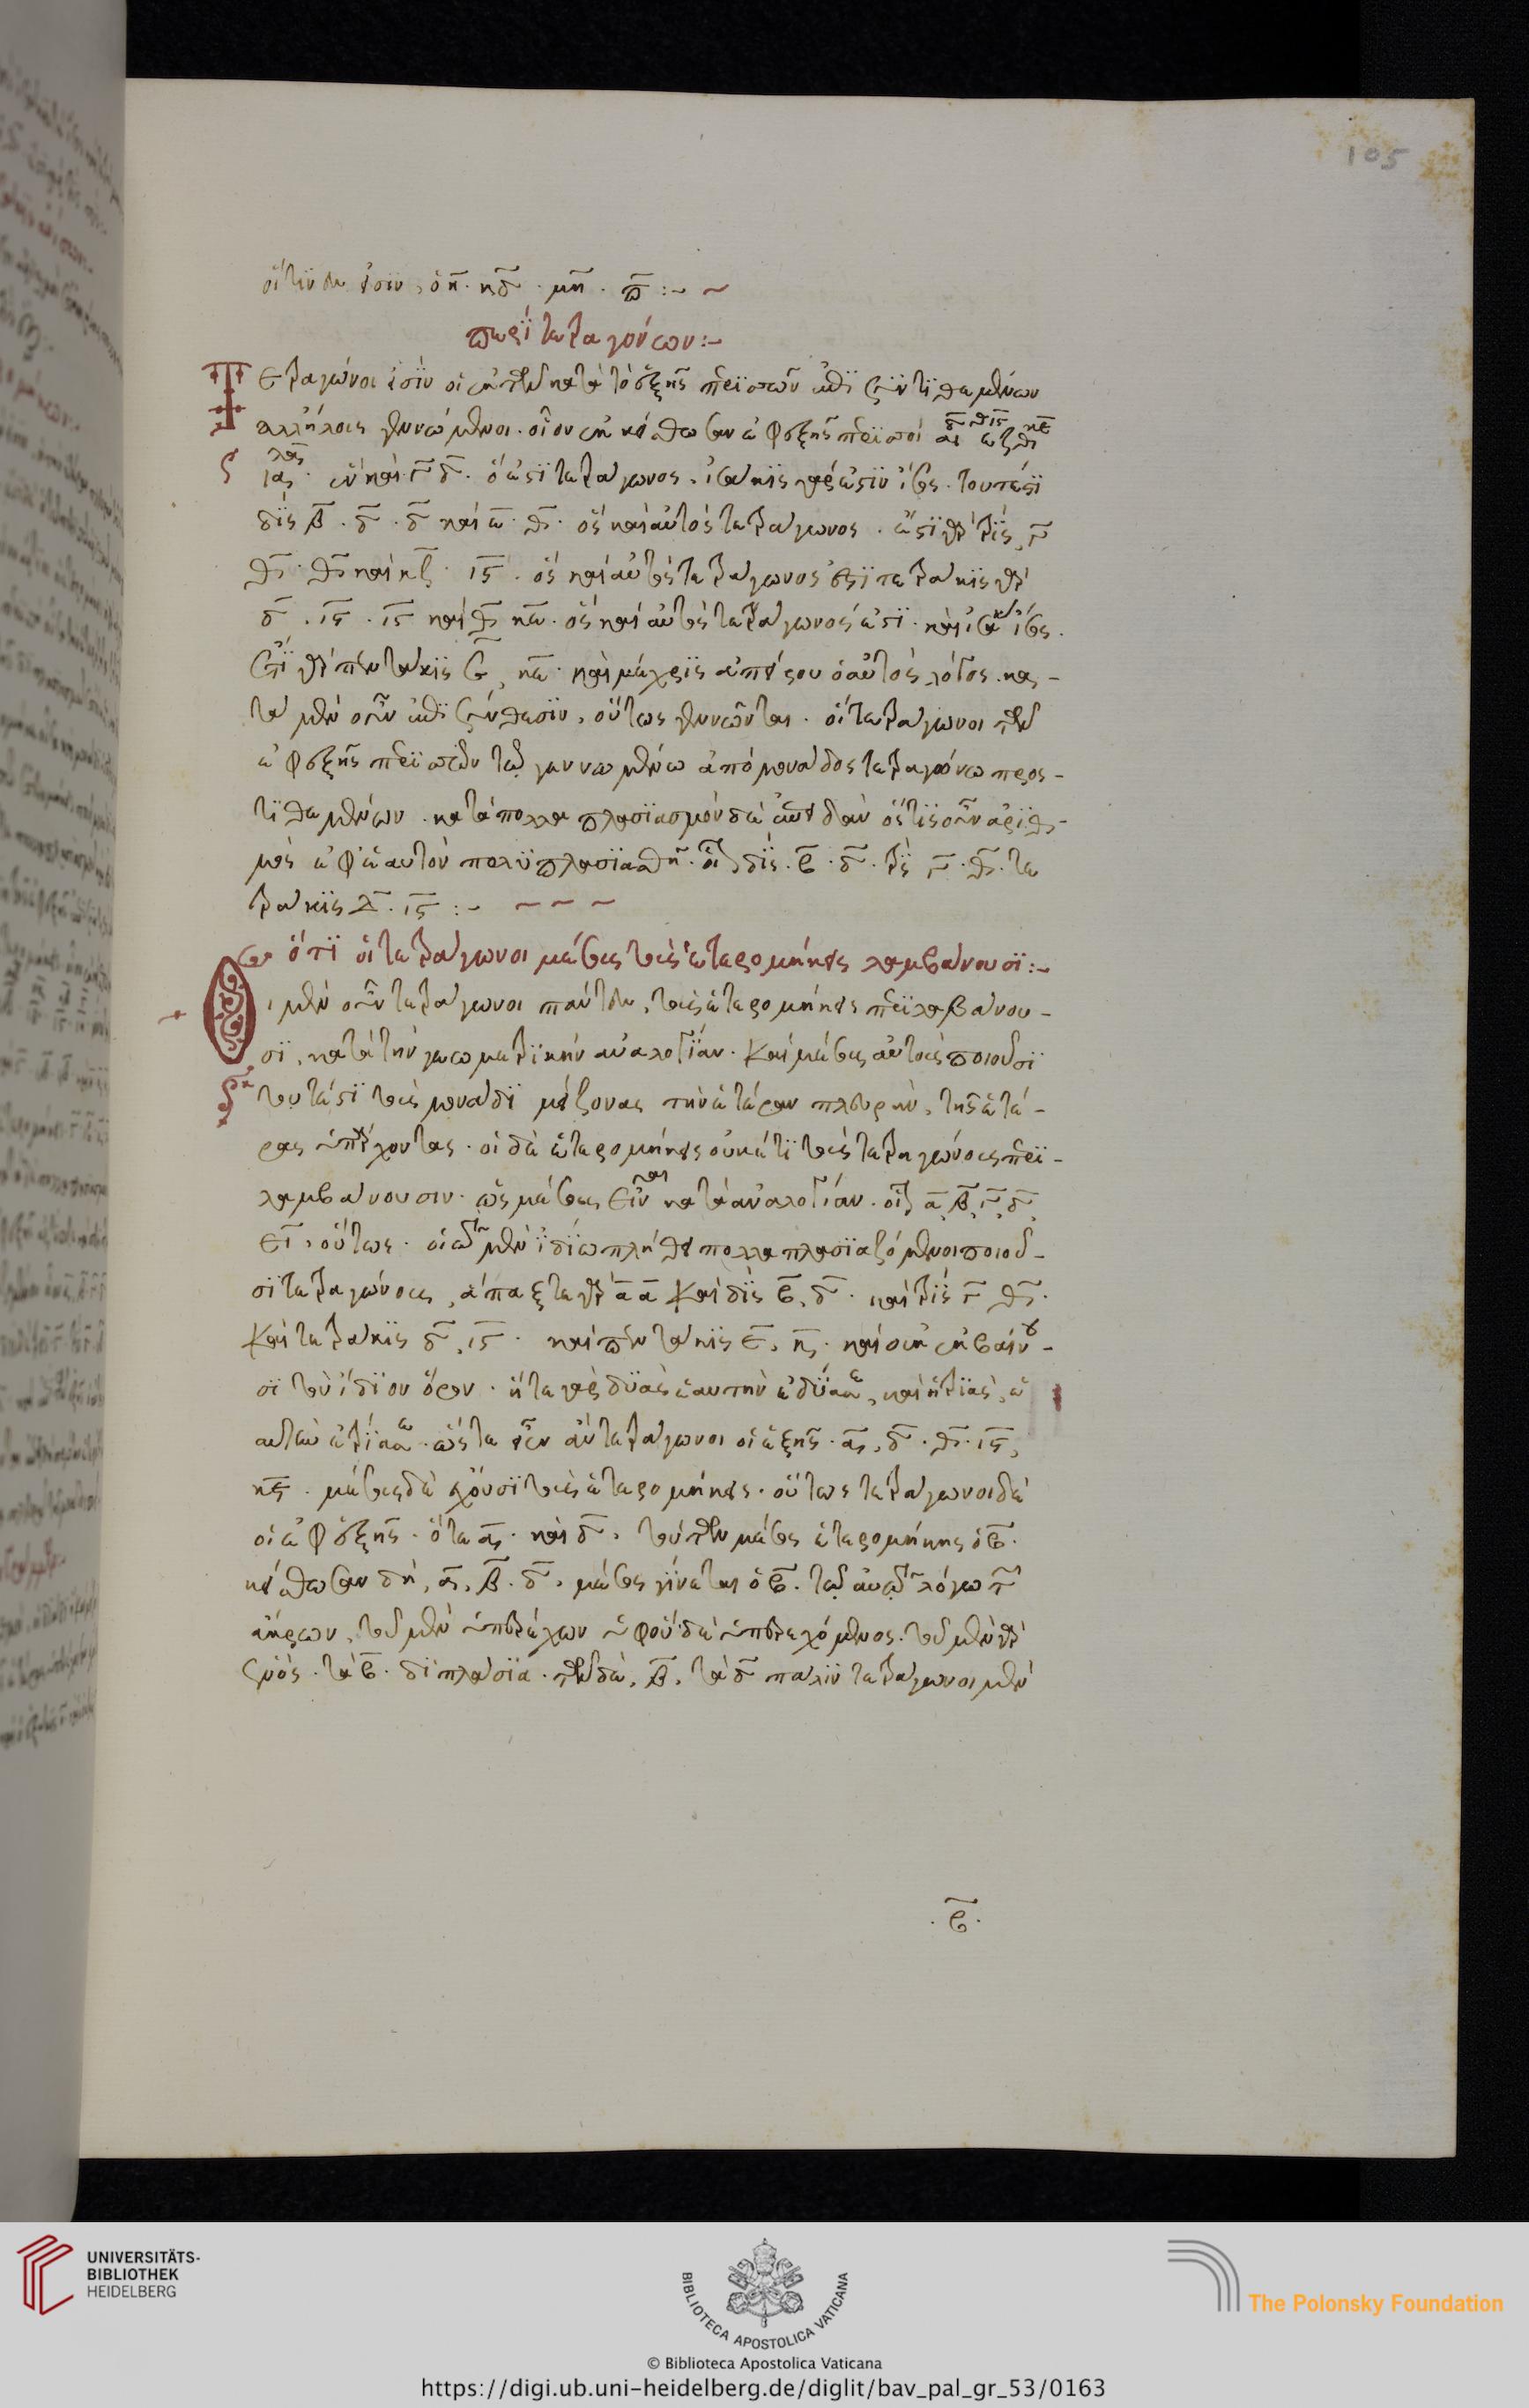 οἵτινές εἰσιν, ὁ η̄. κ̄δ̄. μ̄η̄. π̄ :~ ~
περὶ τετραγώνων :~
Τετράγωνοι εἰσὶν οἱ ἐκ τῶν κατὰ τὸ ἑξῆς περισσῶν ἐπισυντιθεμένων
ἀλλήλοις γεννώμενοι. οἷον ἐκκείσθωσαν ἐφεξῆς περισσοὶ
ἓν καὶ γ̄ δ̄. ὅ ἐστι τετράγωνος. ἰσάκις γάρ ἐστιν ἴσος. τουτέστι
δὶς β̄. δ̄. δ̄ καὶ ε̄. θ̄. ὃς καὶ αὐτὸς τετράγωνος. ἔστι γὰρ τρὶς γ̄
θ̄. θ̄ καὶ ζ̄. ῑϛ̄. ὃς καὶ αὐτὸς τετράγωνος ἐστὶ τετράκις γὰρ
δ̄. ῑϛ̄. ῑϛ̄ καὶ θ̄ κ̄ε̄. ὃς καὶ αὐτὸς τετράγωνός ἐστι. καὶ ἰσάκις ἴσος.
ἔστι γὰρ πεντάκις ε̄, κ̄ε̄. καὶ μέχρις ἀπείρου ὁ αὐτὸς λόγος. κα-
τὰ μὲν οὖν ἐπισύνθεσιν, οὕτως γεννῶνται. οἱ τετράγωνοι τῶν
ἐφεξῆς περισσῶν τῷ γεννωμένῳ ἀπὸ μονάδος τετραγώνῳ προς-
τιθεμένων. κατὰ πολλαπλασιασμὸν δὲ ἐπειδὰν ὅστις οὖν ἀριθ-
μὸς ἐφ' ἑαυτὸν πολυπλασιασθῇ. οἷον δὶς. β̄. δ̄. τρὶς γ̄. θ̄. τε
τράκις δ̄. ῑϛ̄ :~ ~ ~ ~
ὅτι οἱ τετράγωνοι μέσους τοὺς ἑτερομήκεις λαμβάνουσι :~
Οἱ μὲν οὖν τετράγωνοι πάντες, τοὺς ἑτερομήκεις περιλαμβάνου-
σι, κατὰ τὴν γεωμετρικὴν ἀναλογίαν. καὶ μέσους αὐτοὺς ποιοῦσι
τουτέστι τοὺς μονάδι μείζονας τὴν ἑτέραν πλευρὰν, τῆς ἑτέ-
ρας ὑπερέχοντας. οἱ δὲ ἑτερομήκεις οὐκέτι τοὺς τετραγώνους περι-
λαμβάνουσιν. ὡς μέσους εἶναι κατὰ ἀναλογίαν. οἷον ᾱ, β̄, γ̄, δ̄,
ε̄. οὕτως. οἱ δὲ μὲν ἰδίῳ πλήθει πολλαπλασιαζόμενοι ποιοῦ-
σι τετραγώνους, ἅπαξ τε γὰρ ᾱ ᾱ καὶ δὶς β̄, δ̄. καὶ τρὶς γ̄ θ̄.
καὶ τετράκις δ̄, ῑϛ̄. καὶ πεντάκις ε̄, κ̄ε̄. καὶ οὐκ ἐκβαίνου-
σι τὸν ἴδιον ὅρον. ἥ τε γὰρ δυὰς ἑαυτὴν ἐδύασε, καὶ ἡ τριὰς, ἑ
αυτὴν ἐτρίασε. ὥστε εἶεν ἂν τετράγωνοι οἱ ἑξῆς. ᾱ, δ̄. θ̄. ῑϛ̄,
κ̄ε̄. μέσους δὲ ἔχουσι τοὺς ἑτερομήκεις. οὕτως τετράγωνοι δὲ
οἱ ἐφεξῆς. ὅ τε ᾱ. καὶ δ̄. τούτων μέσος ἑτερομήκης ὁ β̄.
κείσθωσαν δὴ, ᾱ, β̄. δ̄. μέσος γίνεται ὁ β̄. τῷ αὐτῷ λόγῳ τῶν
ἄκρων, τοῦ μὲν ὑπερέχων ὑφ' οὗ δὲ ὑπερεχόμενος. τοῦ μὲν γὰρ
ἑνὸς. τὰ β̄. διπλάσια. τῶν δὲ, β̄, τὰ δ̄ πάλιν τετράγωνοι μὲν
. β̄.
105
UNIVERSITÄTS-
BIBLIOTHEK
HEIDELBERG
BIBLIOTECA APOSTOLICA VATICANA
© Biblioteca Apostolica Vaticana
The Polonsky Foundation
https://digi.ub.uni-heidelberg.de/diglit/bav_pal_gr_53/0163